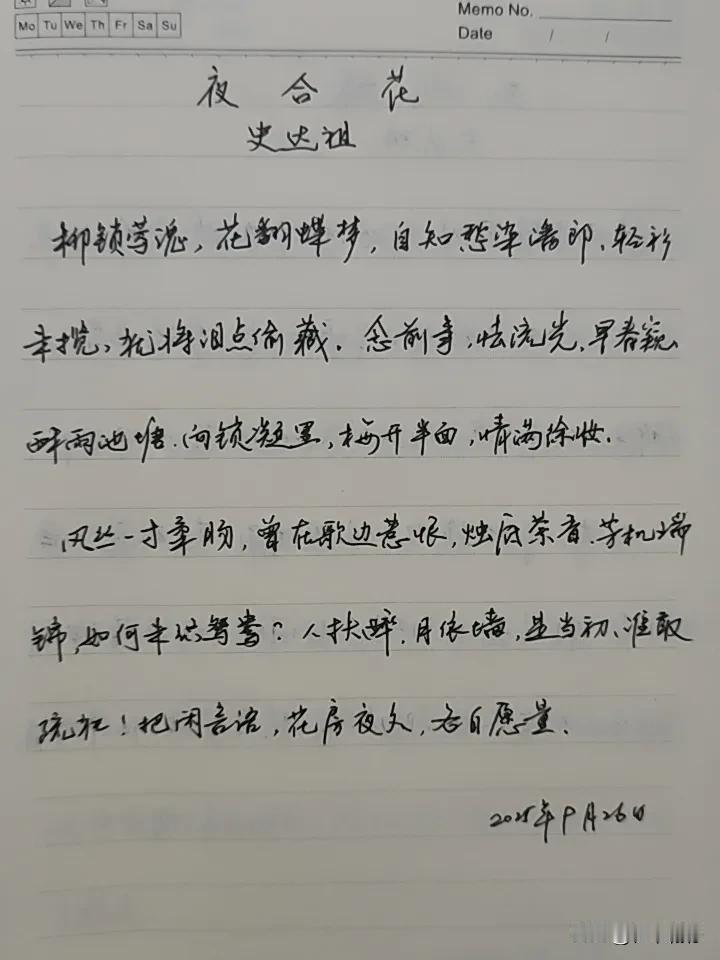 Memo No.
Mo Tu We Th Fr Sa Su
Date / /
夜合花
史达祖
柳锁莺魂，花翻蝶梦，自知愁染潘郎、轻衫
未揽，犹将泪点偷藏。念前事，怯流光，早春窥、
酥雨池塘、向锁凝里，梅开半面，情满徐妆。
风丝一寸柔肠，曾在歌边惹恨，烛底萦香、芳机瑞
锦，如何未织鸳鸯？人扶醉、月依墙，是当初、谁敢
疏狂！把闲言语，花房夜久，各自愿量。
2025年9月26日